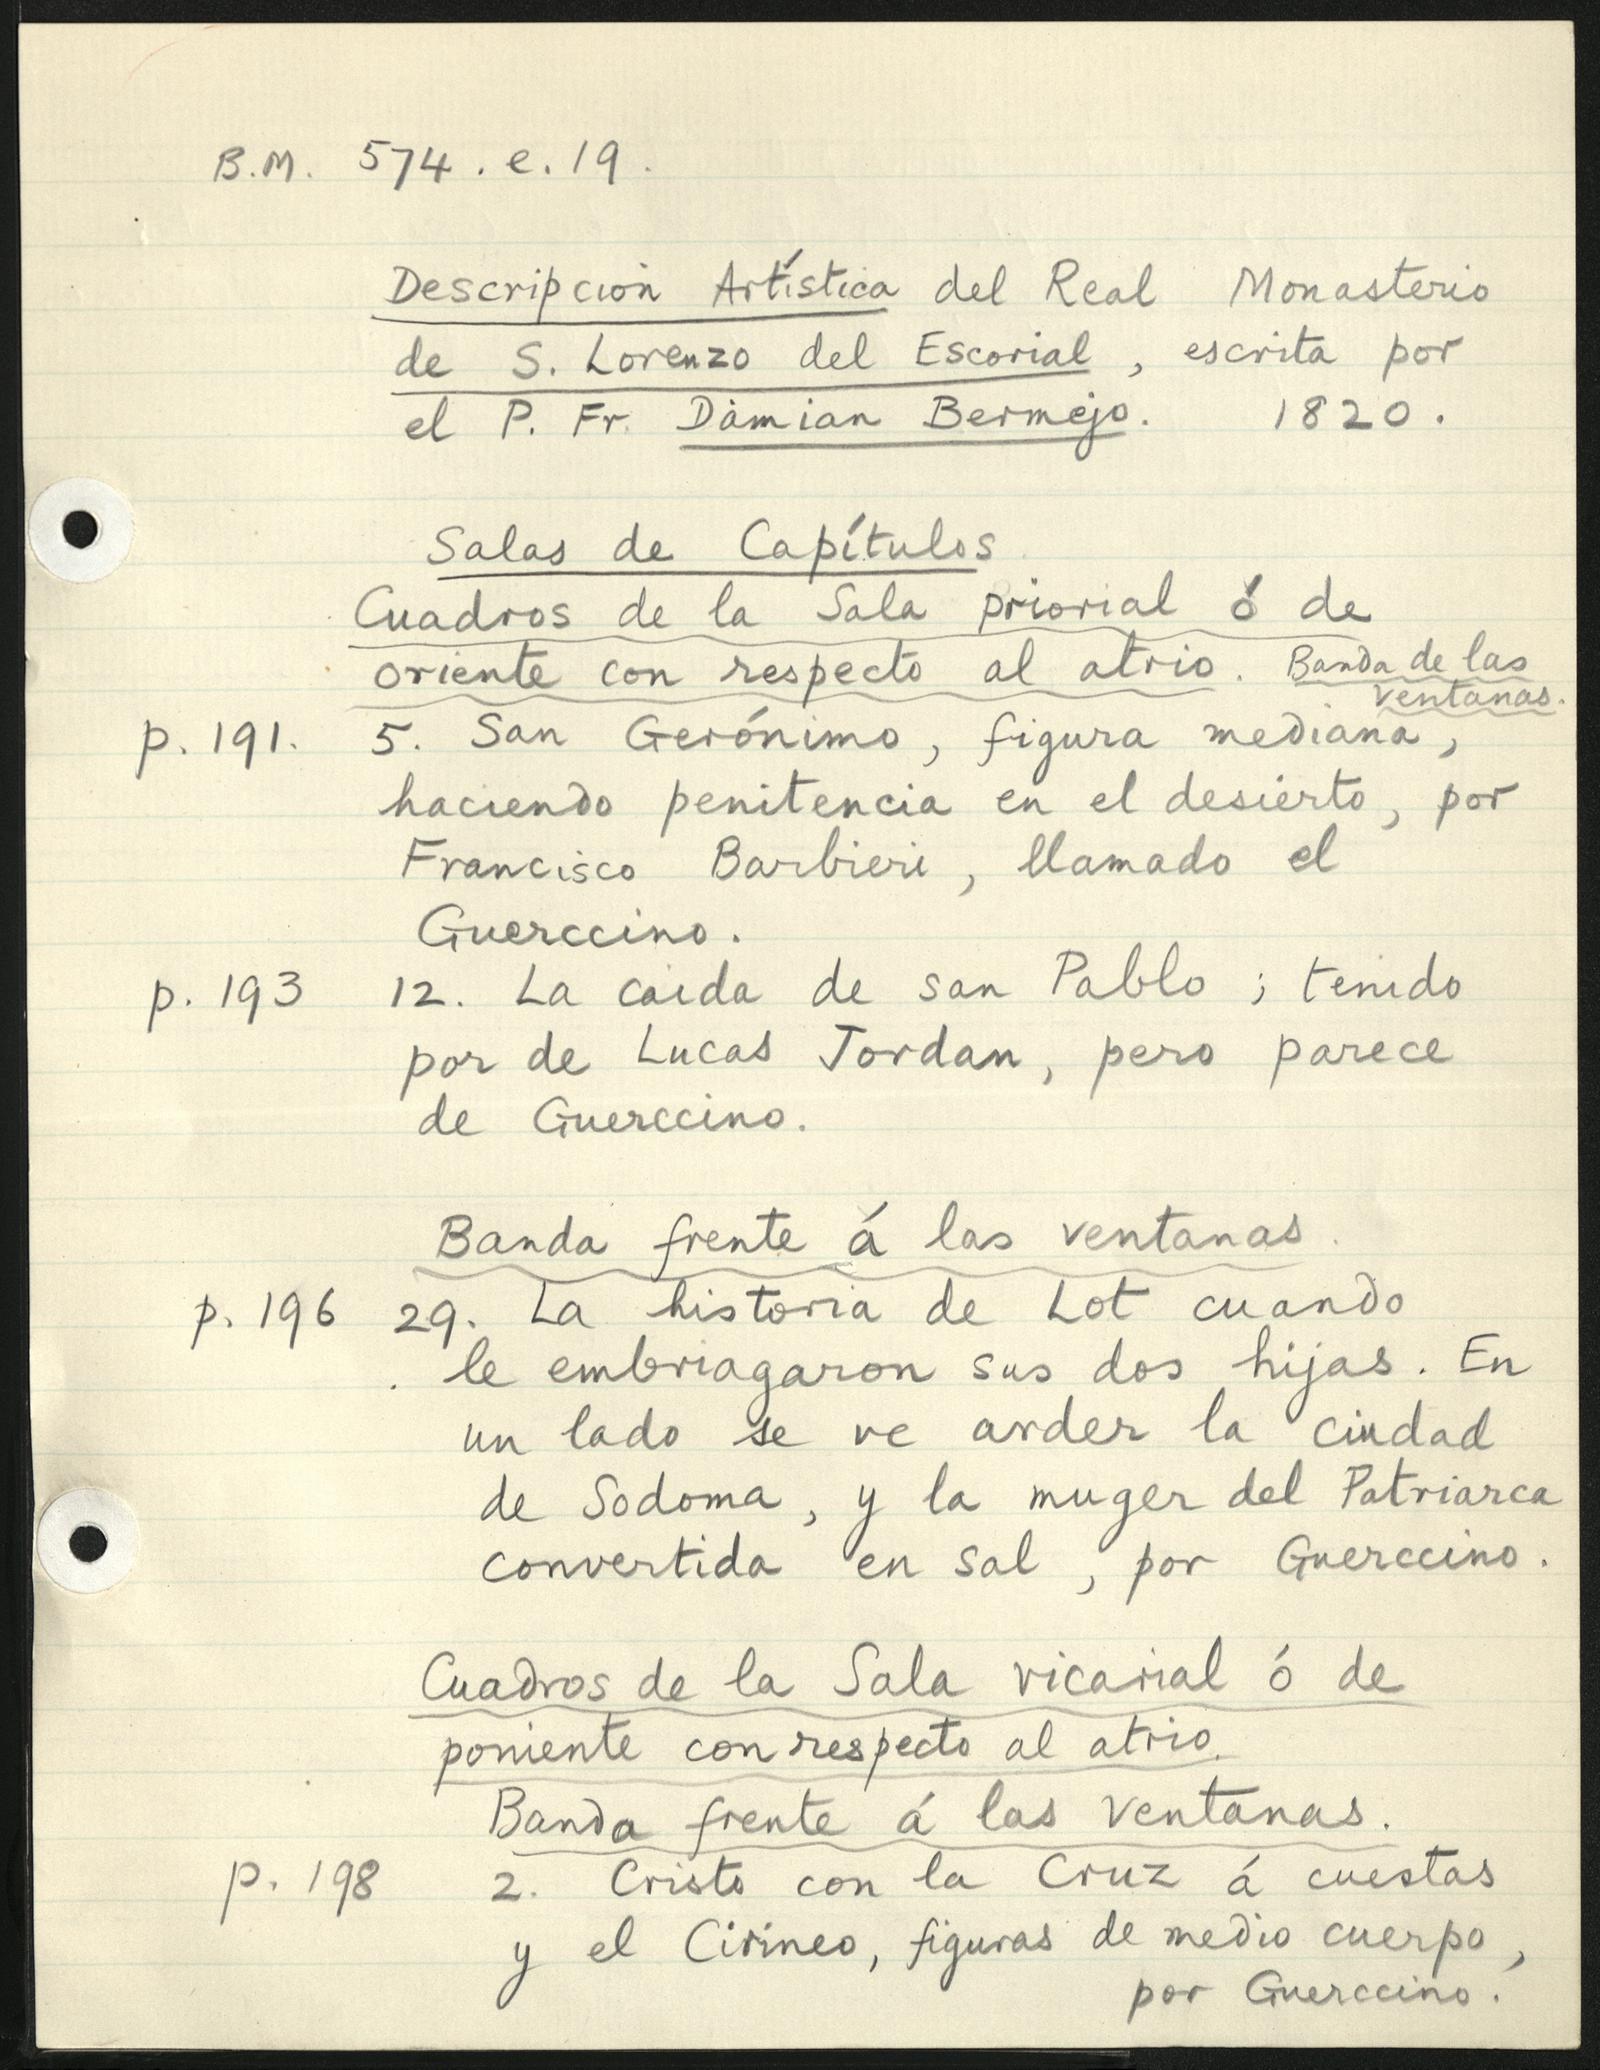 B.M. 574.e.19.
Descripcion Artística del Real Monasterio
de S. Lorenzo del Escorial, escrita por
el P. Fr. Damian Bermejo. 1820.
Salas de Capítulos
Cuadros de la Sala priorial ó de
oriente con respecto al atrio. Banda de las
ventanas.
p. 191. 5. San Gerónimo, figura mediana,
haciendo penitencia en el desierto, por
Francisco Barbieri, llamado el
Guerccino.
p. 193 12. La caida de san Pablo; tenido
por de Lucas Jordan, pero parece
de Guerccino.
Banda frente á las ventanas.
p. 196 29. La historia de Lot cuando
le embriagaron sus dos hijas. En
un lado se ve arder la ciudad
de Sodoma, y la muger del Patriarca
convertida en sal, por Guerccino.
Cuadros de la Sala vicarial ó de
poniente con respecto al atrio.
Banda frente á las ventanas.
p. 198 2. Cristo con la Cruz á cuestas
y el Cirineo, figuras de medio cuerpo,
por Guerccino.